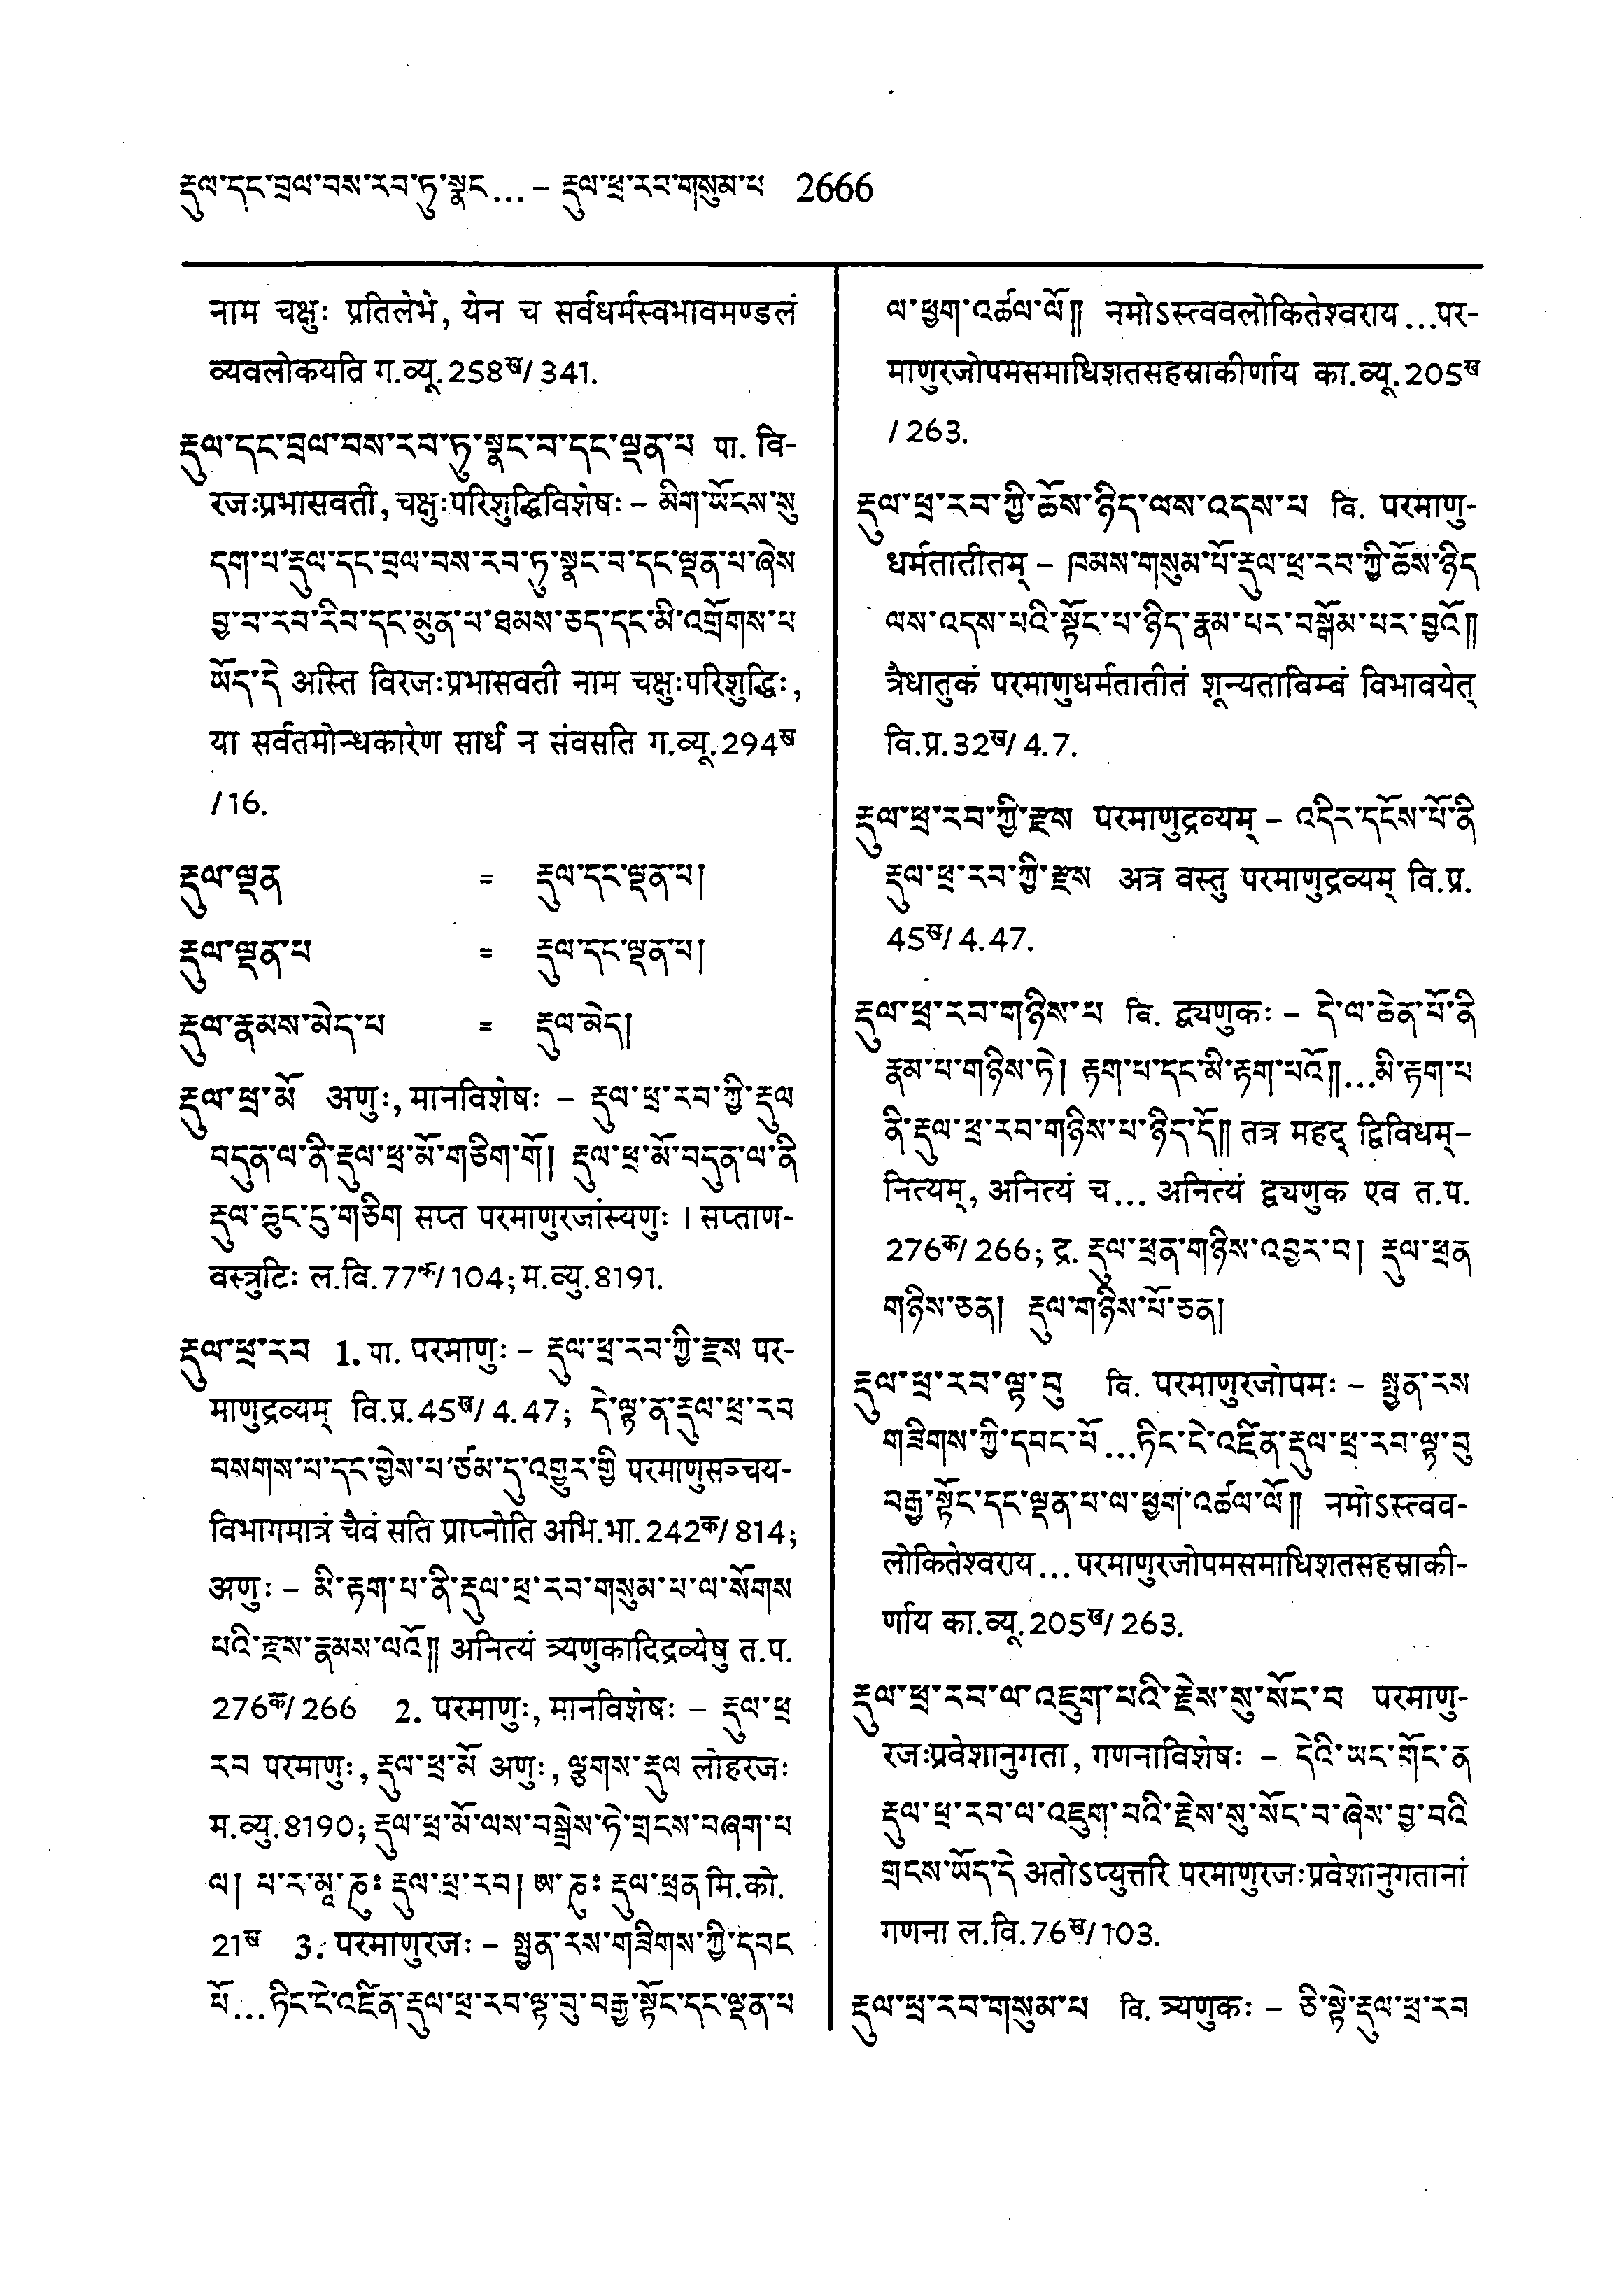 རྡུལ་དང་བྲལ་བས་རབ་ཏུ་སྣང... – རྡུལ་ཕྲ་རབ་གསུམ་པ 2666
नाम चक्षुः प्रतिलेभे, येन च सर्वधर्मस्वभावमण्डलं
व्यवलोकयति ग.व्यू.258ख/341.
རྡུལ་དང་བྲལ་བས་རབ་ཏུ་སྣང་བ་དང་ལྡན་པ पा. वि-
रजःप्रभासवती, चक्षुःपरिशुद्धिविशेषः – མིག་ཡོངས་སུ
དག་པ་རྡུལ་དང་བྲལ་བས་རབ་ཏུ་སྣང་བ་དང་ལྡན་པ་ཞེས
བྱ་བ་རབ་རིབ་དང་མུན་པ་ཐམས་ཅད་དང་མི་འགྲོགས་པ
ཡོད་དེ अस्ति विरजःप्रभासवती नाम चक्षुःपरिशुद्धिः,
या सर्वतमोन्धकारेण सार्धं न संवसति ग.व्यू.294ख
/16.
རྡུལ་ལྡན = རྡུལ་དང་ལྡན་པ།
རྡུལ་ལྡན་པ = རྡུལ་དང་ལྡན་པ།
རྡུལ་རྣམས་མེད་པ = རྡུལ་མེད།
རྡུལ་ཕྲ་མོ अणुः, मानविशेषः – རྡུལ་ཕྲ་རབ་ཀྱི་རྡུལ
བདུན་ལ་ནི་རྡུལ་ཕྲ་མོ་གཅིག་གོ། རྡུལ་ཕྲ་མོ་བདུན་ལ་ནི
རྡུལ་ཆུང་དུ་གཅིག सप्त परमाणुरजांस्यणुः । सप्ताण-
वस्त्रुटिः ल.वि.77क/104; म.व्यु.8191.
རྡུལ་ཕྲ་རབ 1. पा. परमाणुः – རྡུལ་ཕྲ་རབ་ཀྱི་རྫས पर-
माणुद्रव्यम् वि.प्र.45ख/4.47; དེ་ལྟ་ན་རྡུལ་ཕྲ་རབ
བསགས་པ་དང་གྱེས་པ་ཙམ་དུ་འགྱུར་གྱི परमाणुसञ्चय-
विभागमात्रं चैवं सति प्राप्नोति अभि.भा.242क/814;
अणुः – མི་རྟག་པ་ནི་རྡུལ་ཕྲ་རབ་གསུམ་པ་ལ་སོགས
པའི་རྫས་རྣམས་ལའོ༎ अनित्यं त्र्यणुकादिद्रव्येषु त.प.
276क/266 2. परमाणुः, मानविशेषः – རྡུལ་ཕྲ
རབ परमाणुः, རྡུལ་ཕྲ་མོ अणुः, ལྕགས་རྡུལ लोहरजः
म.व्यु.8190; རྡུལ་ཕྲ་མོ་ལས་བསྒྲེས་ཏེ་གྲངས་བཞག་པ
ལ། པ་ར་མཱ་ཎུཿ རྡུལ་ཕྲ་རབ། ཨ་ཎུཿ རྡུལ་ཕྲན मि.को.
21ख 3. परमाणुरजः – སྤྱན་རས་གཟིགས་ཀྱི་དབང
པོ...ཏིང་ངེ་འཛིན་རྡུལ་ཕྲ་རབ་ལྟ་བུ་བརྒྱ་སྟོང་དང་ལྡན་པ
ལ་ཕྱག་འཚལ་ལོ༎ नमोऽस्त्ववलोकितेश्वराय...पर-
माणुरजोपमसमाधिशतसहस्राकीर्णाय का.व्यू.205ख
/263.
རྡུལ་ཕྲ་རབ་ཀྱི་ཆོས་ཉིད་ལས་འདས་པ वि. परमाणु-
धर्मतातीतम् – ཁམས་གསུམ་པོ་རྡུལ་ཕྲ་རབ་ཀྱི་ཆོས་ཉིད
ལས་འདས་པའི་སྟོང་པ་ཉིད་རྣམ་པར་བསྒོམ་པར་བྱའོ༎
त्रैधातुकं परमाणुधर्मतातीतं शून्यताबिम्बं विभावयेत्
वि.प्र.32ख/4.7.
རྡུལ་ཕྲ་རབ་ཀྱི་རྫས परमाणुद्रव्यम् – འདིར་དངོས་པོ་ནི
རྡུལ་ཕྲ་རབ་ཀྱི་རྫས अत्र वस्तु परमाणुद्रव्यम् वि.प्र.
45ख/4.47.
རྡུལ་ཕྲ་རབ་གཉིས་པ वि. द्व्यणुकः – དེ་ལ་ཆེན་པོ་ནི
རྣམ་པ་གཉིས་ཏེ། རྟག་པ་དང་མི་རྟག་པའོ༎...མི་རྟག་པ
ནི་རྡུལ་ཕྲ་རབ་གཉིས་པ་ཉིད་དོ༎ तत्र महद् द्विविधम्–
नित्यम्, अनित्यं च... अनित्यं द्व्यणुक एव त.प.
276क/266; द्र. རྡུལ་ཕྲན་གཉིས་འབྱར་བ། རྡུལ་ཕྲན
གཉིས་ཅན། རྡུལ་གཉིས་པོ་ཅན།
རྡུལ་ཕྲ་རབ་ལྟ་བུ वि. परमाणुरजोपमः – སྤྱན་རས
གཟིགས་ཀྱི་དབང་པོ...ཏིང་ངེ་འཛིན་རྡུལ་ཕྲ་རབ་ལྟ་བུ
བརྒྱ་སྟོང་དང་ལྡན་པ་ལ་ཕྱག་འཚལ་ལོ༎ नमोऽस्त्वव-
लोकितेश्वराय...परमाणुरजोपमसमाधिशतसहस्राकी-
र्णाय का.व्यू.205ख/263.
རྡུལ་ཕྲ་རབ་ལ་འཇུག་པའི་རྗེས་སུ་སོང་བ परमाणु-
रजःप्रवेशानुगता, गणनाविशेषः – དེའི་ཡང་གོང་ན
རྡུལ་ཕྲ་རབ་ལ་འཇུག་པའི་རྗེས་སུ་སོང་བ་ཞེས་བྱ་བའི
གྲངས་ཡོད་དེ अतोऽप्युत्तरि परमाणुरजःप्रवेशानुगतानां
गणना ल.वि.76ख/103.
རྡུལ་ཕྲ་རབ་གསུམ་པ वि. त्र्यणुकः – ཅི་སྟེ་རྡུལ་ཕྲ་རབ